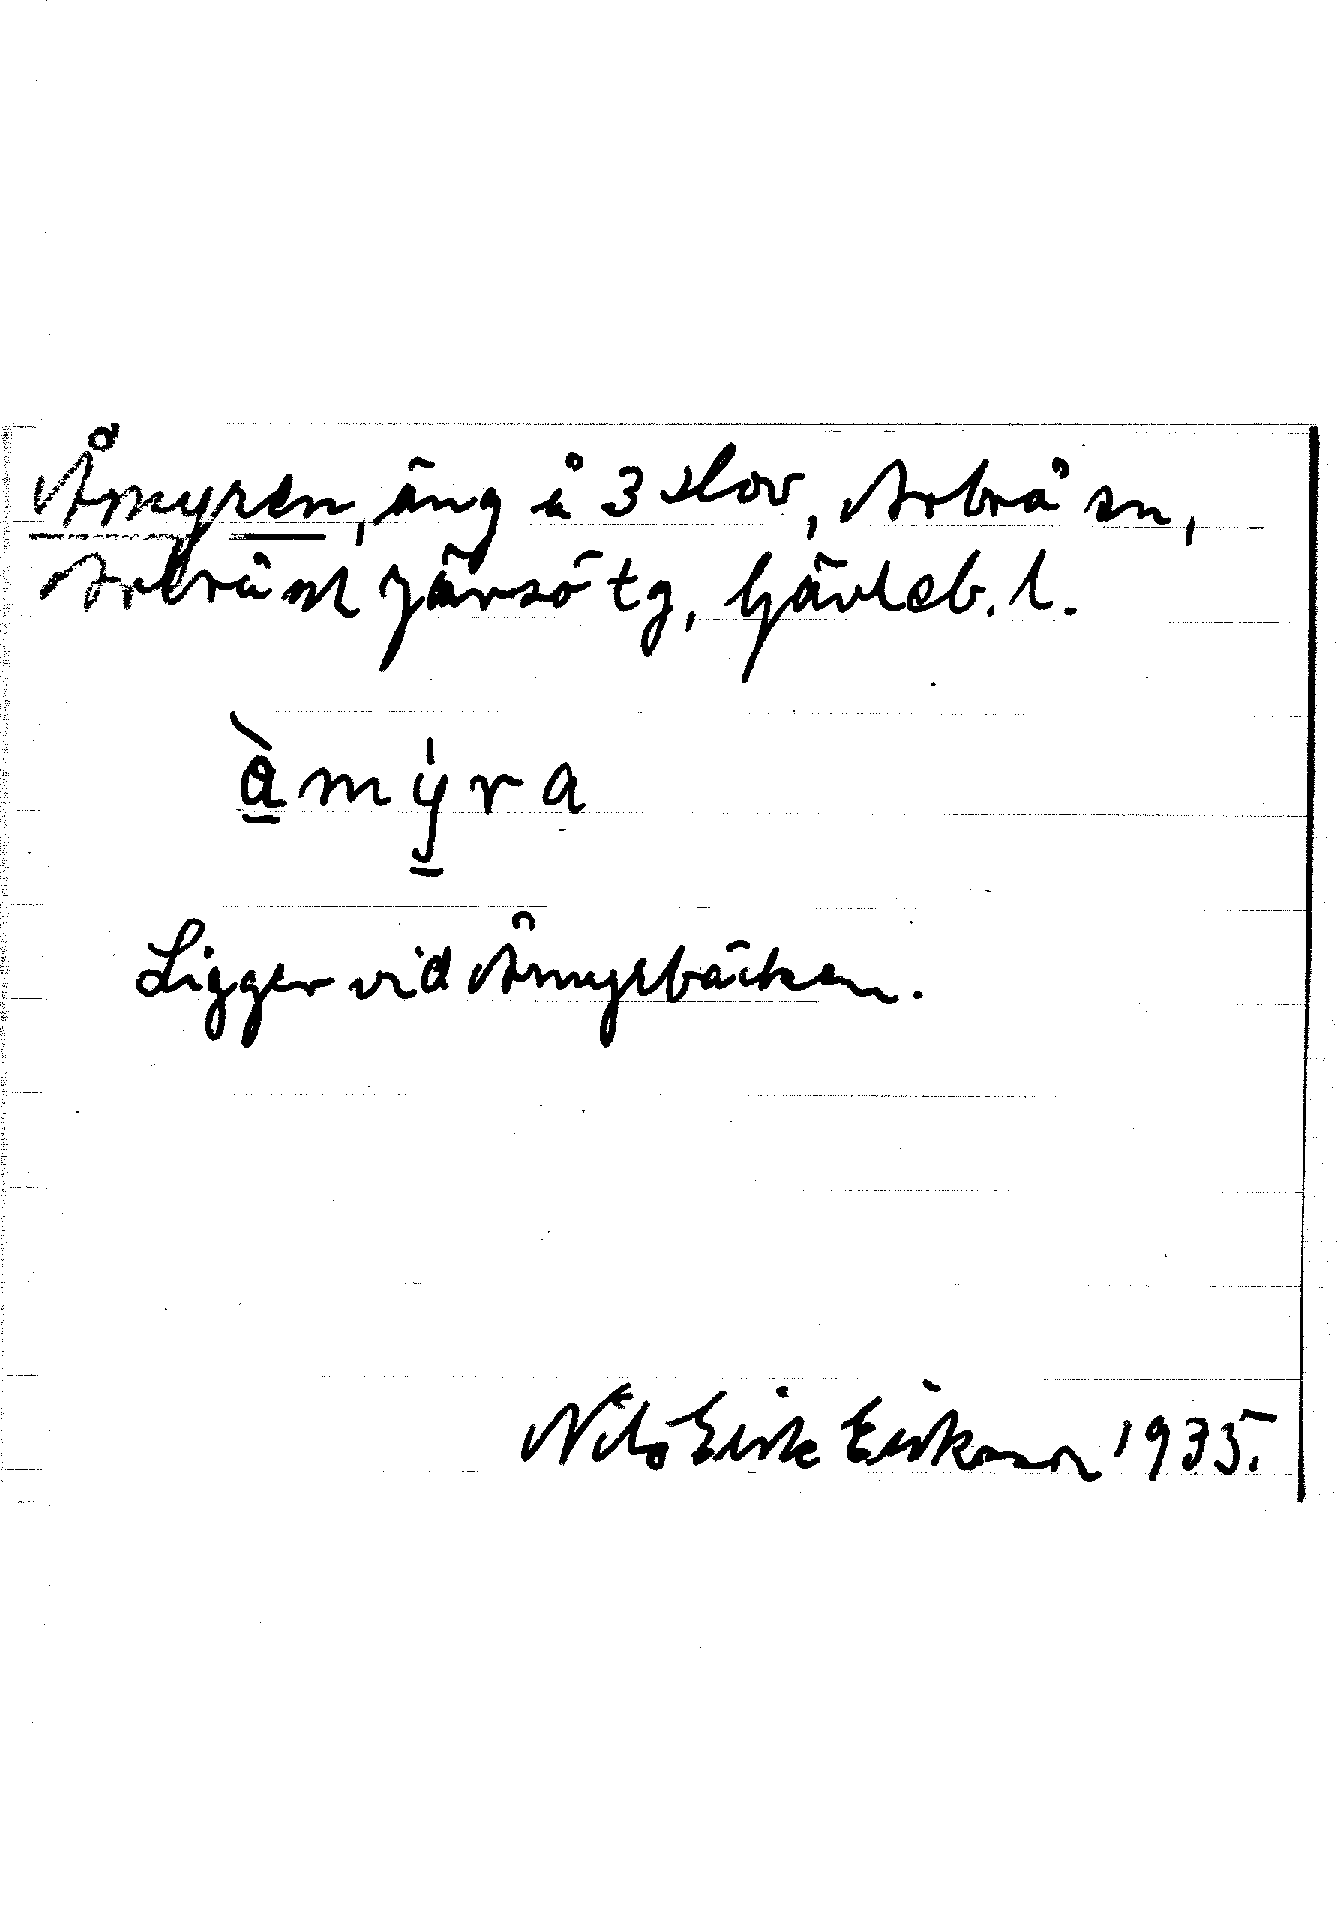 Åmyren, äng å 3 Slov, Arbrå sn,
Arbrå och Järvsö tg, Gävleb. l.
å̀ m ý r a
Ligger vid Åmyrbäcken.
Nils Erik Eriksson 1935.